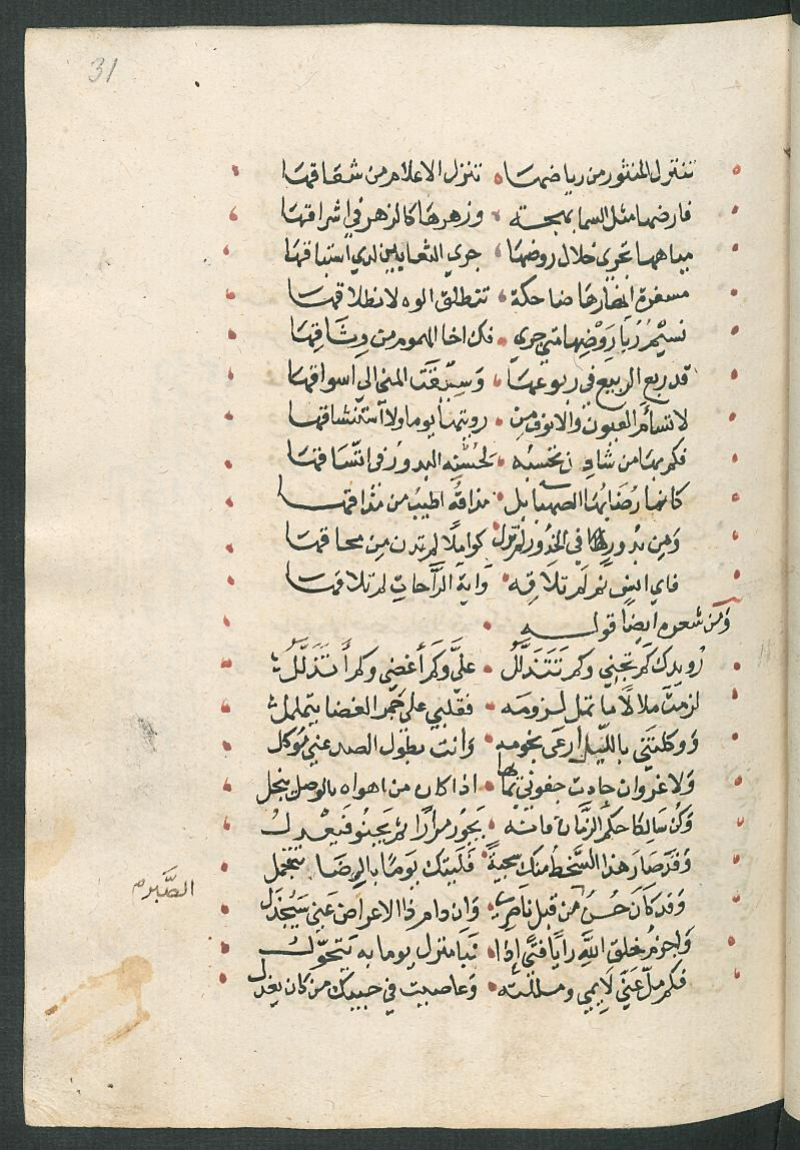 31
تنزل المنثور من رياضها • تنزل الاعلام من شقاقها
فارضها مثل السما بهجة • وزهرها كالزهر في اشراقها
مياهها تجري خلال روضها • جري الثعابين لدي استباقها
مسفرة انهارها ضاحكة • تنطلق الوه لانطلاقها
نسيم رَيا رَوْضِها متي جري • فك اخا الهموم من وِثَاقِها
قد ربع الربيع في ربوعها • وسِيْقَت المني الي اسواقها
لا تسأم العيون والانوف مِن • رويتها يوما ولا استنشاقها
فكم بها من شادن تحسبُه • لحُسْنِه البدور في اتّسَاقها
كانما رُضَابها الصهبا بل • مذاقه اطيبُ من مذاقها
وَمِن بدورها في الخدور لم تزل • كواملًا لم تدن مِن محاقها
فاي انسٍ ثم لم تلاقه • واية الرَّاحاتِ لم تلاقها
وَمن شعره ايضًا قوله
رُويدك كم تجني وكم تَتَذَلَّلُ • عليَّ وكم أغضي وكم أتذلَّلُ
لزمتَ ملالًا ما تمل لزومه • فقلبي علي جَمر الغضا يتململُ
وَوكلتَني بالليل أرعَي نجومه • وَانت بطول الصد عني مُوكل
وَلا غرو ان جادت جفوني بمائها • اذا كان من اهواه بالوصل يبخل
وَكن سالكا حكم الزَّمان فانه • يَجُور مرَارًا ثم يَجنُو فيَعْدِلُ
وَقدْ صَار هذا السَّخط منك سجيةً • فليتك يَومًا بالرضَا تتجمل
وَقد كانَ حسنُ الصَّبر من قبل ناصِري • وَان دام ذا الاعراض عَني سَيَخذل
وَاحزم خلق اللّه رَايا فتًى إذا • نبا منزل يوما به يَتحوّل
فكم ملّ عَنّي لَايمي ومللته • وَعاصيت في حبيك من كان يعذل
الصَّبرم